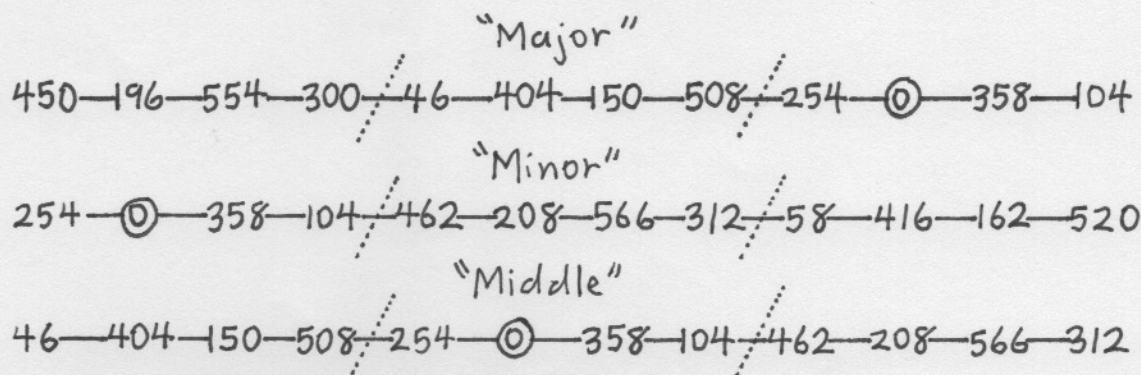 "Major"
450—196—554—300—46—404—150—508—254—0—358—104
"Minor"
254—0—358—104—462—208—566—312—58—416—162—520
"Middle"
46—404—150—508—254—0—358—104—462—208—566—312